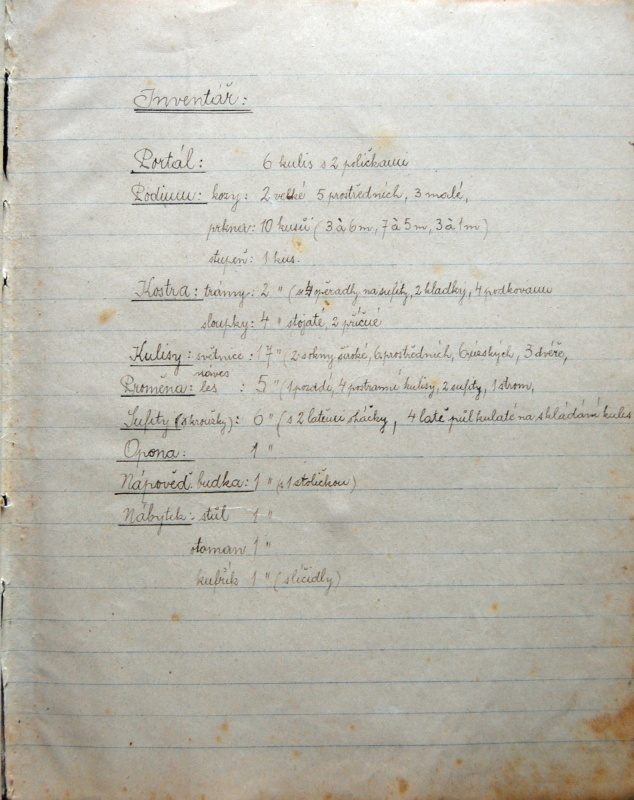 Inventář:
Portál: 6 kulis s 2 poličkami
Podium: kozy: 2 velké 5 prostředních, 3 malé,
prkna: 10 kusů (3 à 6m, 7 à 5m, 3 à 1m)
stupeň: 1 kus.
Kostra: trámy: 2 " (s 4 opěradly na sufity, 2 kladky, 4 podkovami
sloupky: 4 " stojaté, 2 příčné
Kulisy: světnice: 17 " (2 s okny široké, 6 prostředních, 6 úzských, 3 dvéře,
náves
Proměna: les : 5 " (1 pozadí, 4 postranní kulisy, 2 sufity, 1 strom,
Sufity (s kroužky): 6 " (s 2 latěmi , 4 latě půlkulaté na skládání kulis
Opona: 1 "
Nápověd. budka: 1 " (s 1 stoličkou)
Nábytek: stůl 1 "
otoman 1 "
kufřík 1 " (s líčidly)